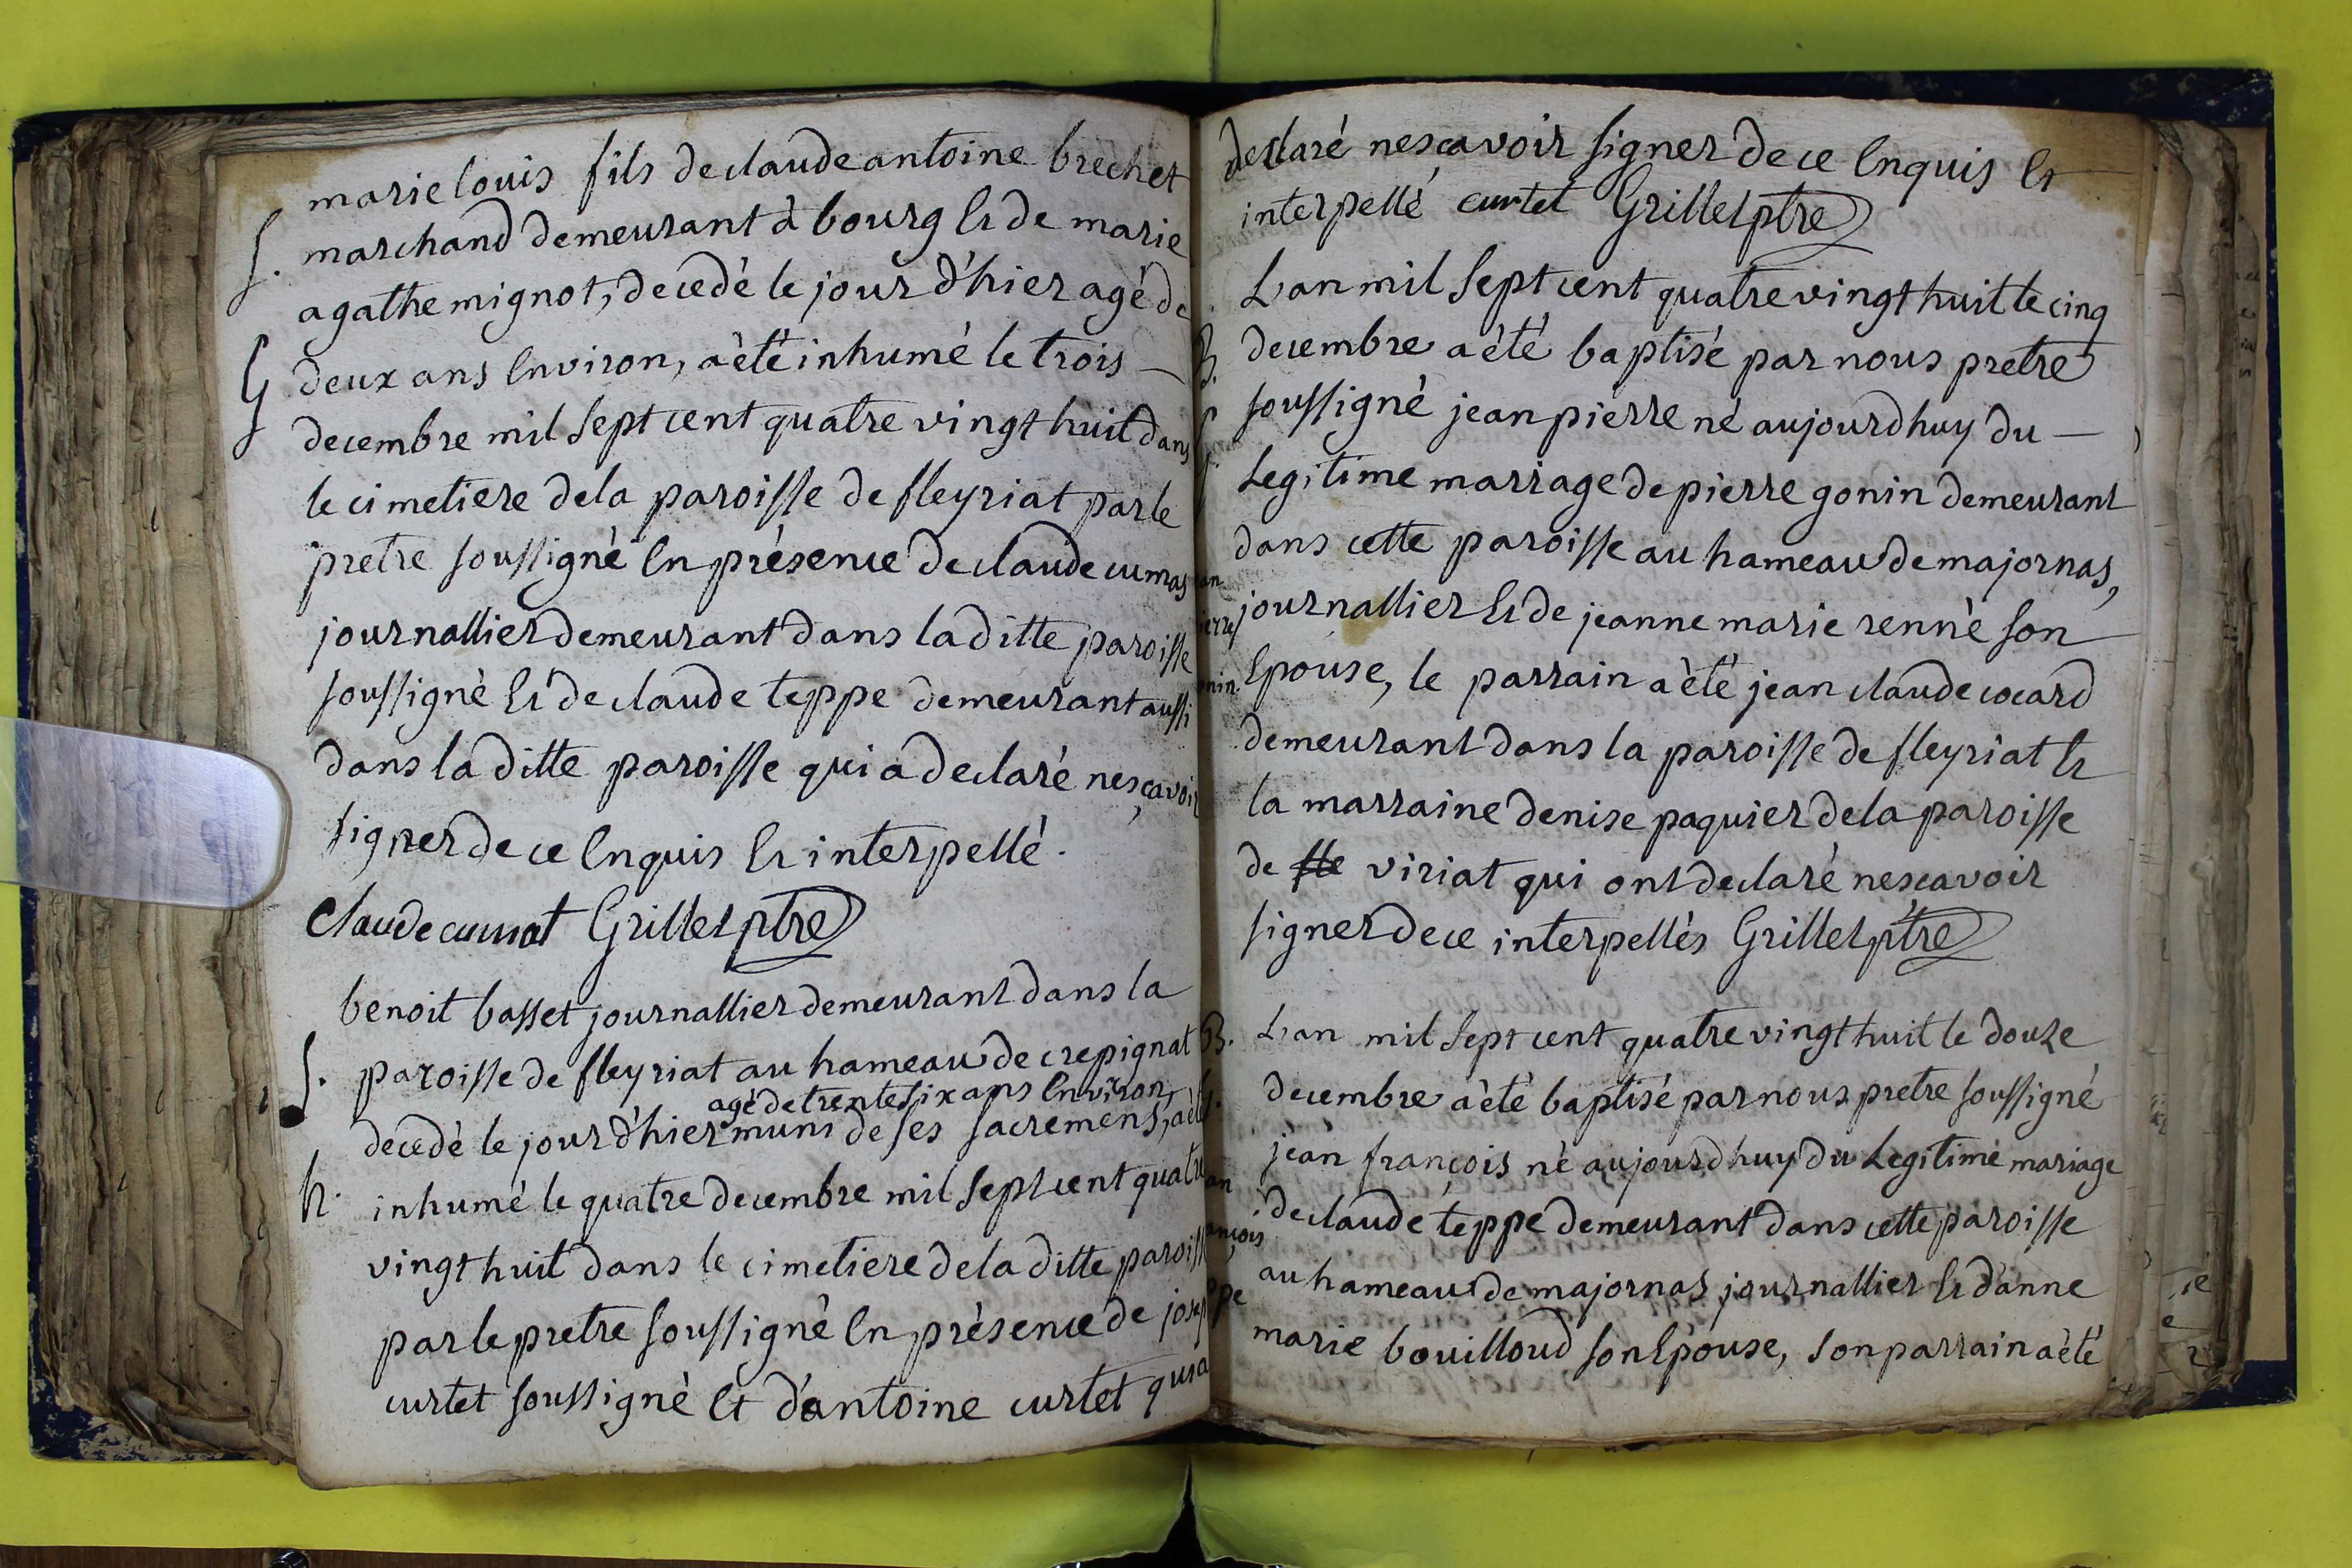 marie louis fils de claude antoine brechet
S. marchand demeurant à bourg et de marie
agathe mignot, decedé le jour d'hier agé de
G deux ans environ, a èté inhumé le trois —
decembre mil sept cent quatre vingt huit dans
le cimetiere de la paroisse de fleyriat par le
pretre soussigné en présence de claude cumas
journallier demeurant dans la ditte paroisse
soussigné et de claude teppe demeurant aussi
dans la ditte paroisse qui a declaré ne sçavoir
signer de ce enquis et interpellé.
Claude cumat Grillet ptre
benoit basset journallier demeurant dans la
S. paroisse de fleyriat au hameau de crepignat
agé de trente six ans environ,
decedé le jour d'hier muni de ses sacremens, a èté
h. inhumé le quatre decembre mil sept cent quatre
vingt huit dans le cimetiere de la ditte paroisse
par le pretre soussigné en présence de josep
curtet soussigné et d'antoine curtet qui a
declaré ne scavoir signer de ce enquis et
interpellé curtet Grillet ptre
L'an mil sept cent quatre vingt huit le cinq
B. decembre a èté baptisé par nous pretre
soussigné jean pierre né aujourdhuy du —
Legitime marriage de pierre gonin demeurant
dans cette paroisse au hameau de majornas,
an
ierre journallier et de jeanne marie renné son
onin. Epouse, le parrain a èté jean claude cocard
demeurant dans la paroisse de fleyriat et
la marraine denise paquier de la paroisse
de fle viriat qui ont declaré ne scavoir
signer de ce interpellés Grillet ptre
B. L'an mil sept cent quatre vingt huit le douze
decembre a èté baptisé par nous pretre soussigné
jean françois né aujourdhuy du Legitime mariage
an
de claude teppe demeurant dans cette paroisse
ançois
au hameau de majornas journallier et d'anne
ppe
marie bouilloud son Epouse, son parrain a èté